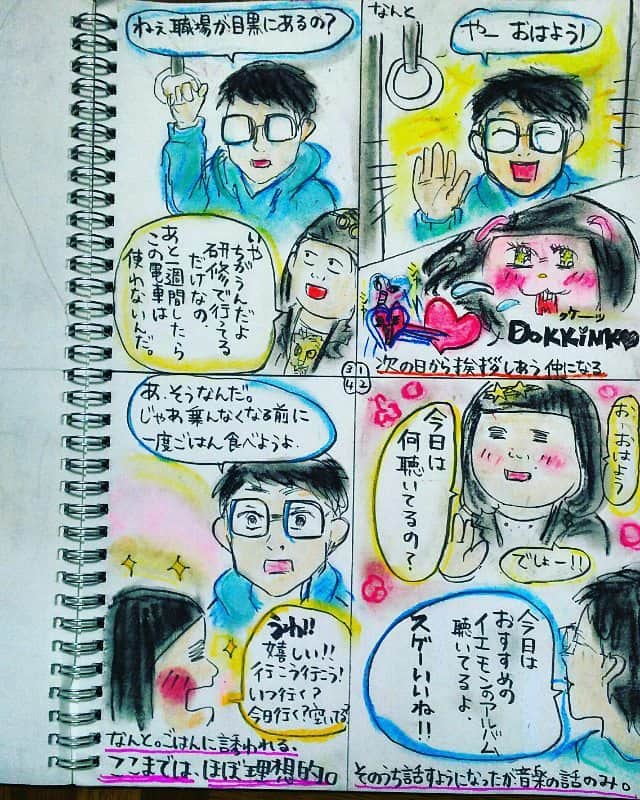 なんと
やー おはよう!
ッケーッ
DOKKINKO
次の日から挨拶しあう仲になる
3 1
4 2
おーおはよう
今日は
何聴いてるの?
でしょー!!
今日は
おすすめの
イエモンのアルバム
聴いてるよ.
スゲーいいね!!
そのうち話すようになったが音楽の話のみ。
ねぇ職場が目黒にあるの?
いや
ちがうんだよ
研修で行ってる
だけなの.
あと一週間したら
この電車は
使わないんだ。
あ.そうなんだ。
じゃあ乗んなくなる前に
一度ごはん食べようよ.
うわ!!
嬉しい!!
行こう行こう!
いつ行く?
今日行く?空いてる
なんと。ごはんに誘われる、
ここまでは、ほぼ理想的。